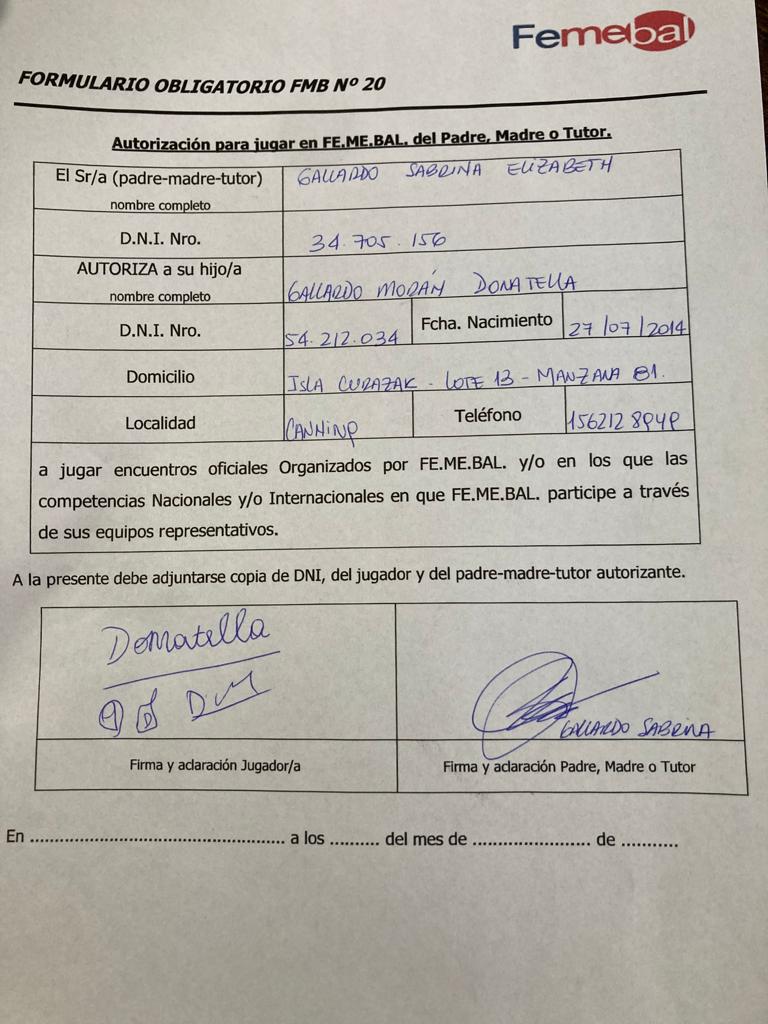 Femebal
FORMULARIO OBLIGATORIO FMB Nº 20
Autorización para jugar en FE.ME.BAL. del Padre, Madre o Tutor.
El Sr/a (padre-madre-tutor) GALLARDO SABRINA ELIZABETH
nombre completo
D.N.I. Nro. 34.705.156
AUTORIZA a su hijo/a
nombre completo GALLARDO MORÁN DONATELLA
D.N.I. Nro. 54.212.034 Fcha. Nacimiento 27/07/2014
Domicilio ISLA - LOTE 13 - MANZANA 81.
Localidad CANNING Teléfono
a jugar encuentros oficiales Organizados por FE.ME.BAL. y/o en los que las
competencias Nacionales y/o Internacionales en que FE.ME.BAL. participe a través
de sus equipos representativos.
A la presente debe adjuntarse copia de DNI, del jugador y del padre-madre-tutor autorizante.
Donatella
GALLARDO SABRINA
Firma y aclaración Jugador/a Firma y aclaración Padre, Madre o Tutor
En ............................................... a los .......... del mes de ....................... de ...........